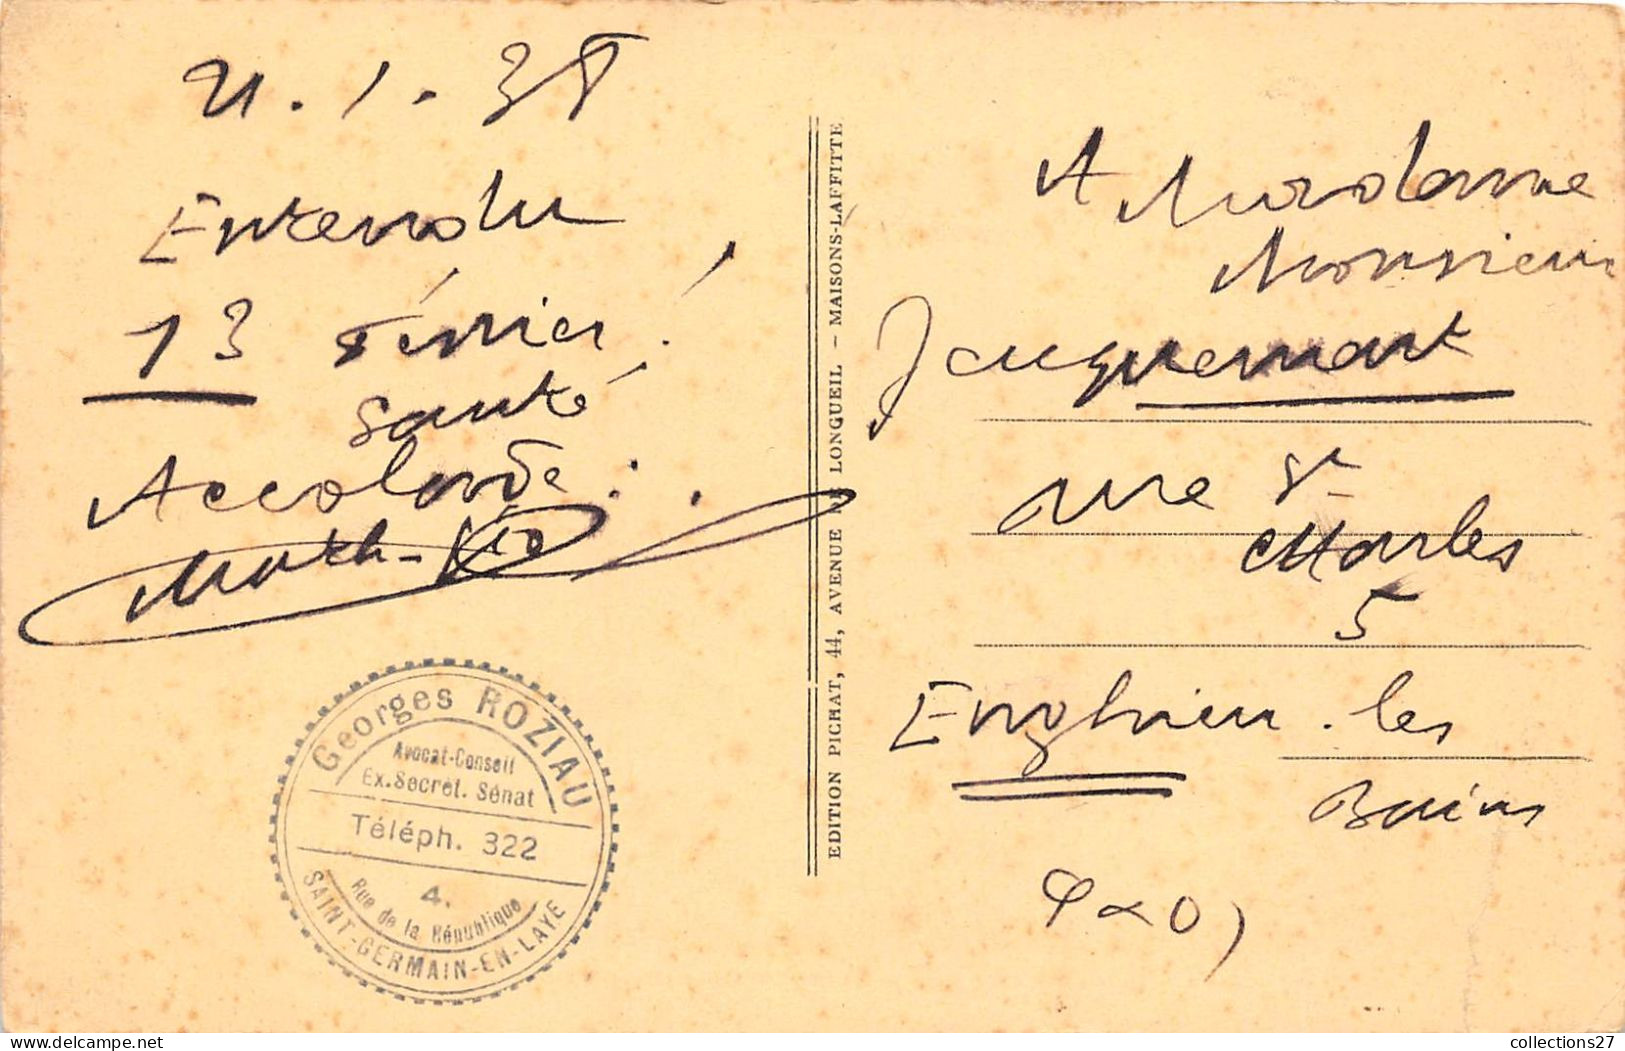 21.1.38
Entendu
13 Février !
Santé
Accolade :.
EDITION PICHAT, 44, AVENUE DE LONGUEIL - MAISONS-LAFFITTE
A Madame
Monsieur
Jacquemart
rue St
Charles
5
Enghien-les
Bains
Georges ROZIAU
Avocat-Conseil
Ex.Secrét. Sénat
Téléph. 322
4.
Rue de la République
SAINT-GERMAIN-EN-LAYE
collections27